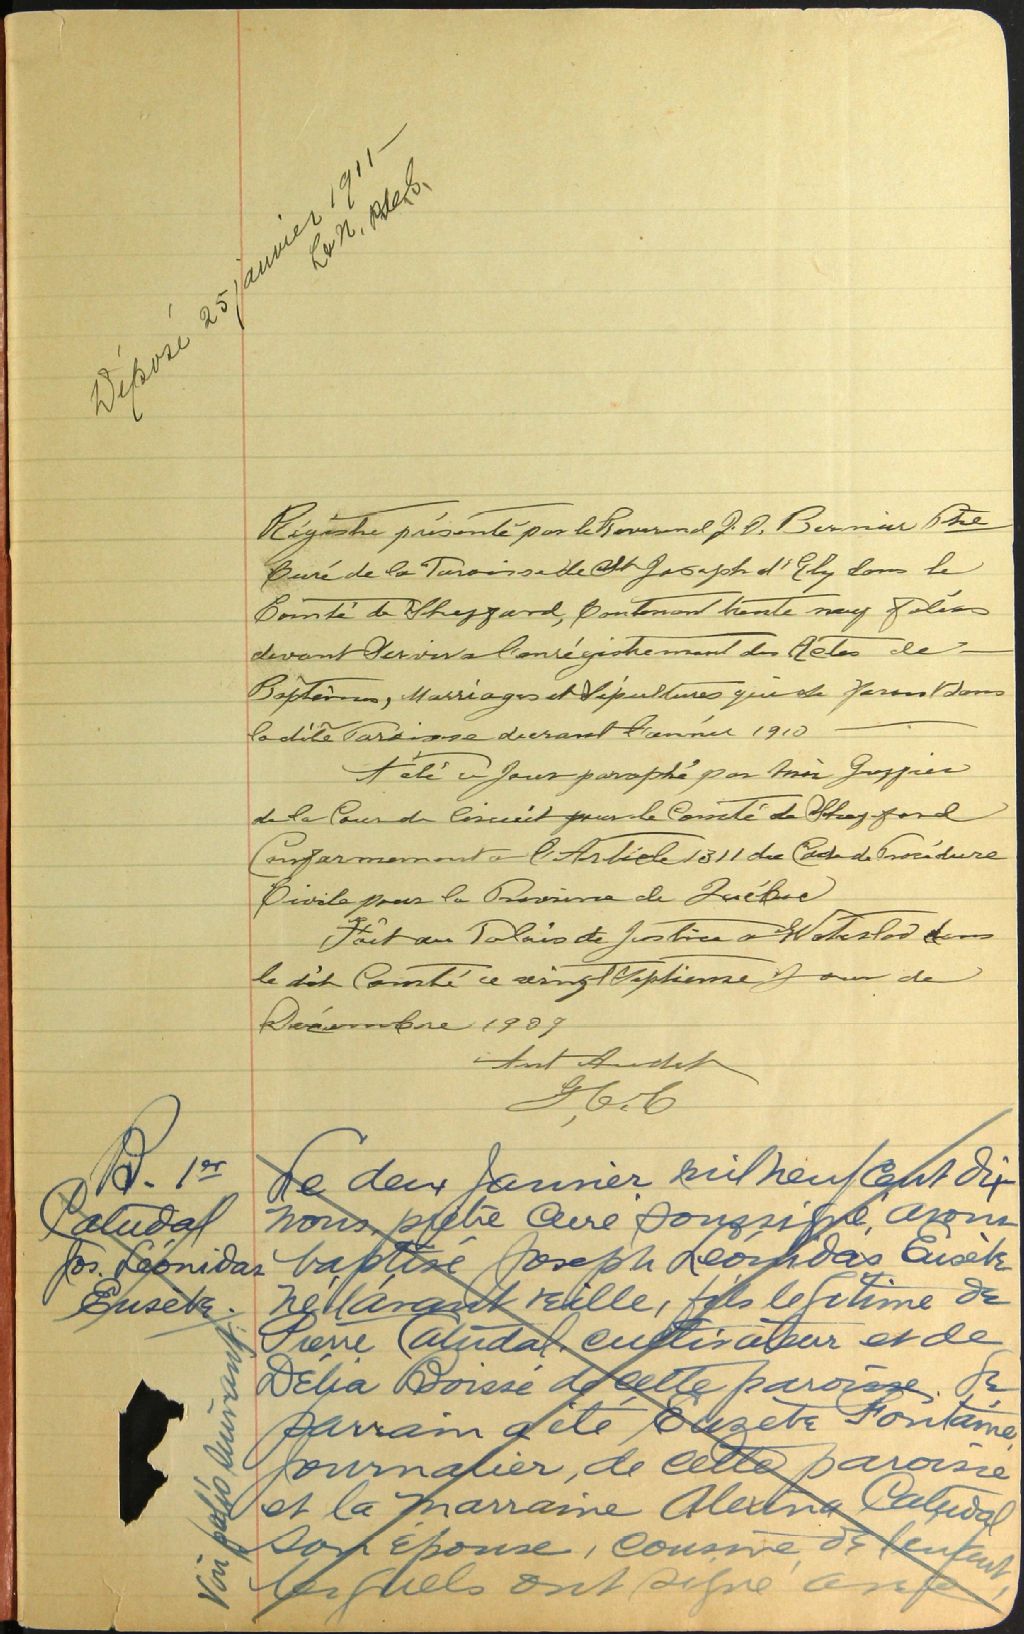 Déposé 25 janvier 1911 —
Régistre présenté par le Reverend J. D. Bernier Ptre
Curé de la Paroisse de St Joseph d'Ely dans le
Comté de Shefford, Contenant trente neuf foléos
devant Servir a l'enrégistrement des Actes de —
Baptêmes, Marriages et Sépultures qui se feront dans
la dite Paroisse durant l'année 1910 —
A été ce Jour paraphé par Moi Greffier
de la Cour de Circuit pour le Comté de Shefford
Conformement a l'Article 1311 du Code de Procédure
Civile pour la Province de Québec
Fait au Palais de Justice a Waterloo dans
le dit Comté ce vingt Septieme Jour de
Décembre 1909
Ant Audet
G.C.C
B. 1er
Catudal
Jos. Léonidas
Eusèbe.
Voir folio suivant.
Le deux Janvier mil neuf cent dix
nous, prêtre curé soussigné, avons
baptisé Joseph Léonidas Eusèbe
né l'avant veille, fils légitime de
Pierre Catudal, cultivateur et de
Délia Boissé de cette paroisse. Le
parrain a été Euzèbe Fontaine,
journalier, de cette paroisse
et la marraine Alexina Catudal
son épouse, cousine de l'enfant,
lesquels ont signé avec